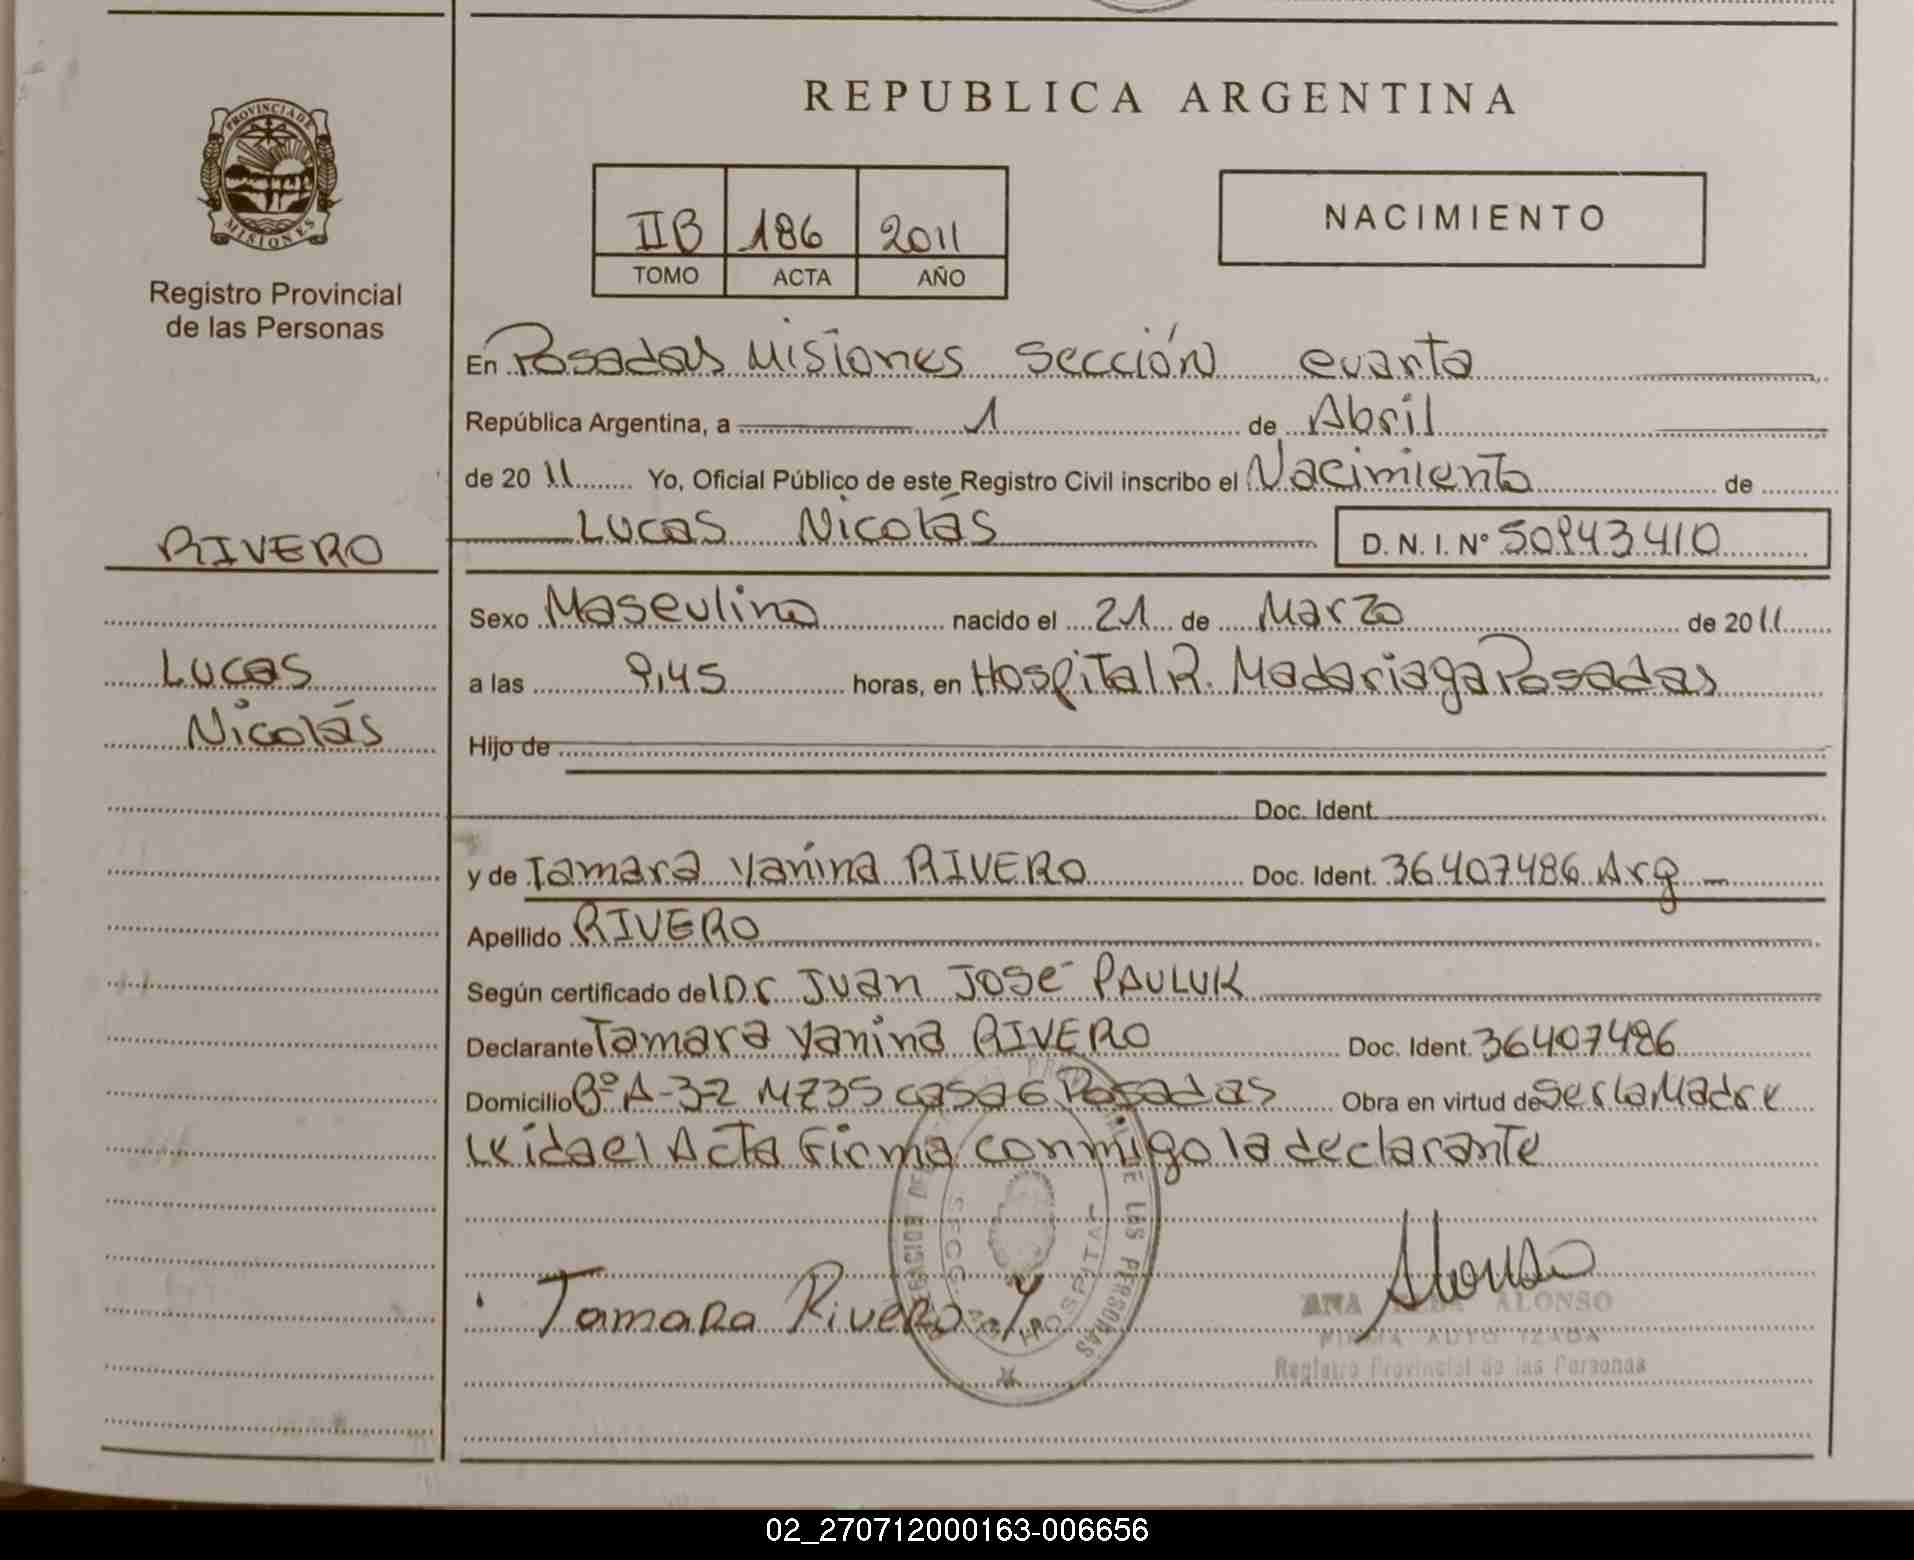 REPUBLICA ARGENTINA
PROVINCIA DE
MISIONES
Registro Provincial
de las Personas
IIB 186 2011
TOMO ACTA AÑO
NACIMIENTO
En Posadas Misiones Sección cuarta
República Argentina, a 1 de Abril
de 2011 Yo, Oficial Público de este Registro Civil inscribo el Nacimiento de
Lucas Nicolás D. N. I. N° 50943410
RIVERO
Lucas
Nicolás
Sexo Masculino nacido el 21 de Marzo de 2011
a las 9,45 horas, en Hospital R. Madariaga Posadas
Hijo de
Doc. Ident.
y de Tamara Yanina RIVERO Doc. Ident. 36407486 Arg
Apellido RIVERO
Según certificado del Dr Juan José PAULUK
Declarante Tamara Yanina RIVERO Doc. Ident. 36407486
Domicilio Bº A-32 MZ35 casa 6 Posadas Obra en virtud de ser la Madre
Leida el Acta Firma conmigo la declarante
DE LAS PERSONAS
SECC. HOSPITAL
Tamara Rivero Y
Alonso
ANA ALONSO
FIRMA AUTORIZADA
Registro Provincial de las Personas
02_270712000163-006656